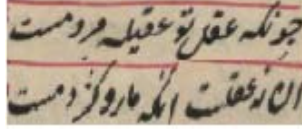 چونکه عقل تو عقیله مردمست
ان نه عقلست انکه مار و کژدمست